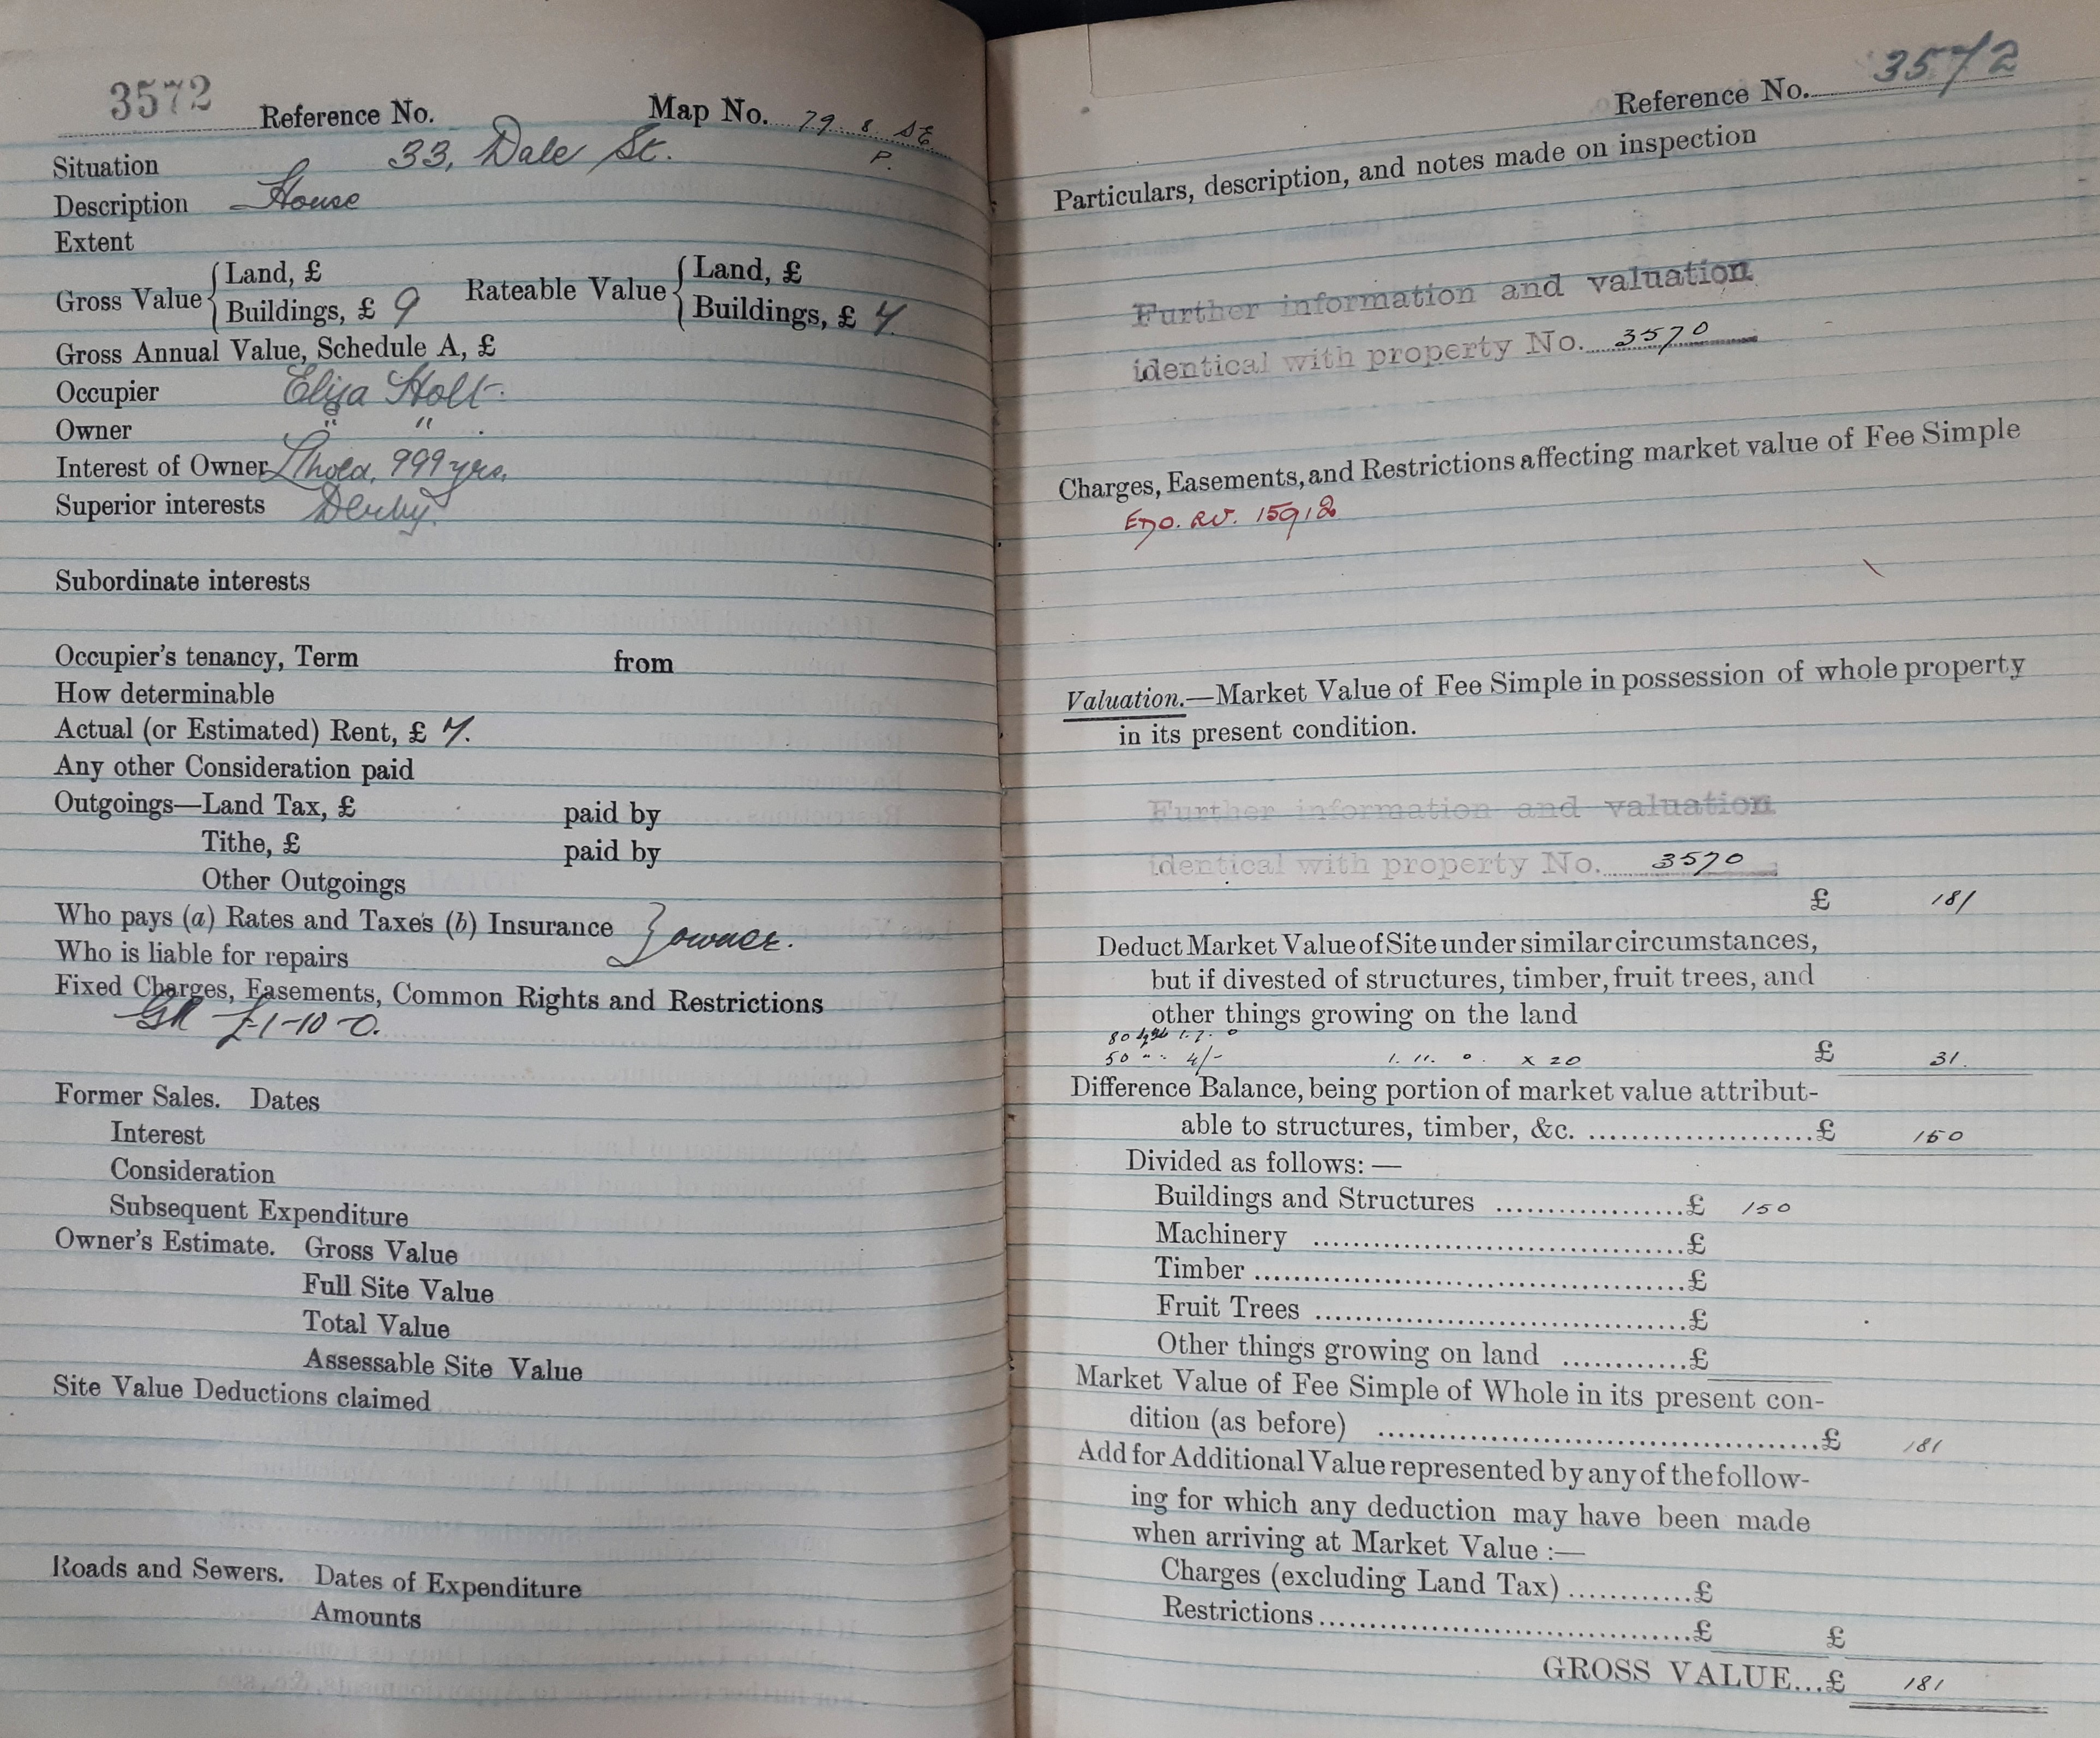 3572 Reference No. Map No. 79. 8. SE
P.
Situation 33, Dale St.
Description House
Extent
Gross Value { Land, £ Rateable Value { Land, £
Buildings, £ 9 Buildings, £ 7
Gross Annual Value, Schedule A, £
Occupier Eliza Holt
Owner " "
Interest of Owner L'hold, 999 yrs.
Superior interests Derby.
Subordinate interests
Occupier's tenancy, Term from
How determinable
Actual (or Estimated) Rent, £ 7.
Any other Consideration paid
Outgoings—Land Tax, £ paid by
Tithe, £ paid by
Other Outgoings
Who pays (a) Rates and Taxes (b) Insurance } owner.
Who is liable for repairs
Fixed Charges, Easements, Common Rights and Restrictions
GR £1-10-0.
Former Sales. Dates
Interest
Consideration
Subsequent Expenditure
Owner's Estimate. Gross Value
Full Site Value
Total Value
Assessable Site Value
Site Value Deductions claimed
Roads and Sewers. Dates of Expenditure
Amounts
Reference No. 3572
Particulars, description, and notes made on inspection
Further information and valuation
identical with property No. 3570
Charges, Easements, and Restrictions affecting market value of Fee Simple
15912
Valuation.—Market Value of Fee Simple in possession of whole property
in its present condition.
Further information and valuation
identical with property No. 3570
£ 181
Deduct Market Value of Site under similar circumstances,
but if divested of structures, timber, fruit trees, and
other things growing on the land
80 1. 7. 0
50 " 4/- 1. 11. 0. x 20 £ 31.
Difference Balance, being portion of market value attribut-
able to structures, timber, &c. ....................£ 150
Divided as follows: —
Buildings and Structures .................£ 150
Machinery .................................£
Timber .......................................£
Fruit Trees .................................£
Other things growing on land ............£
Market Value of Fee Simple of Whole in its present con-
dition (as before) ........................................£ 181
Add for Additional Value represented by any of the follow-
ing for which any deduction may have been made
when arriving at Market Value :—
Charges (excluding Land Tax) ............£
Restrictions.................................£ £
GROSS VALUE...£ 181